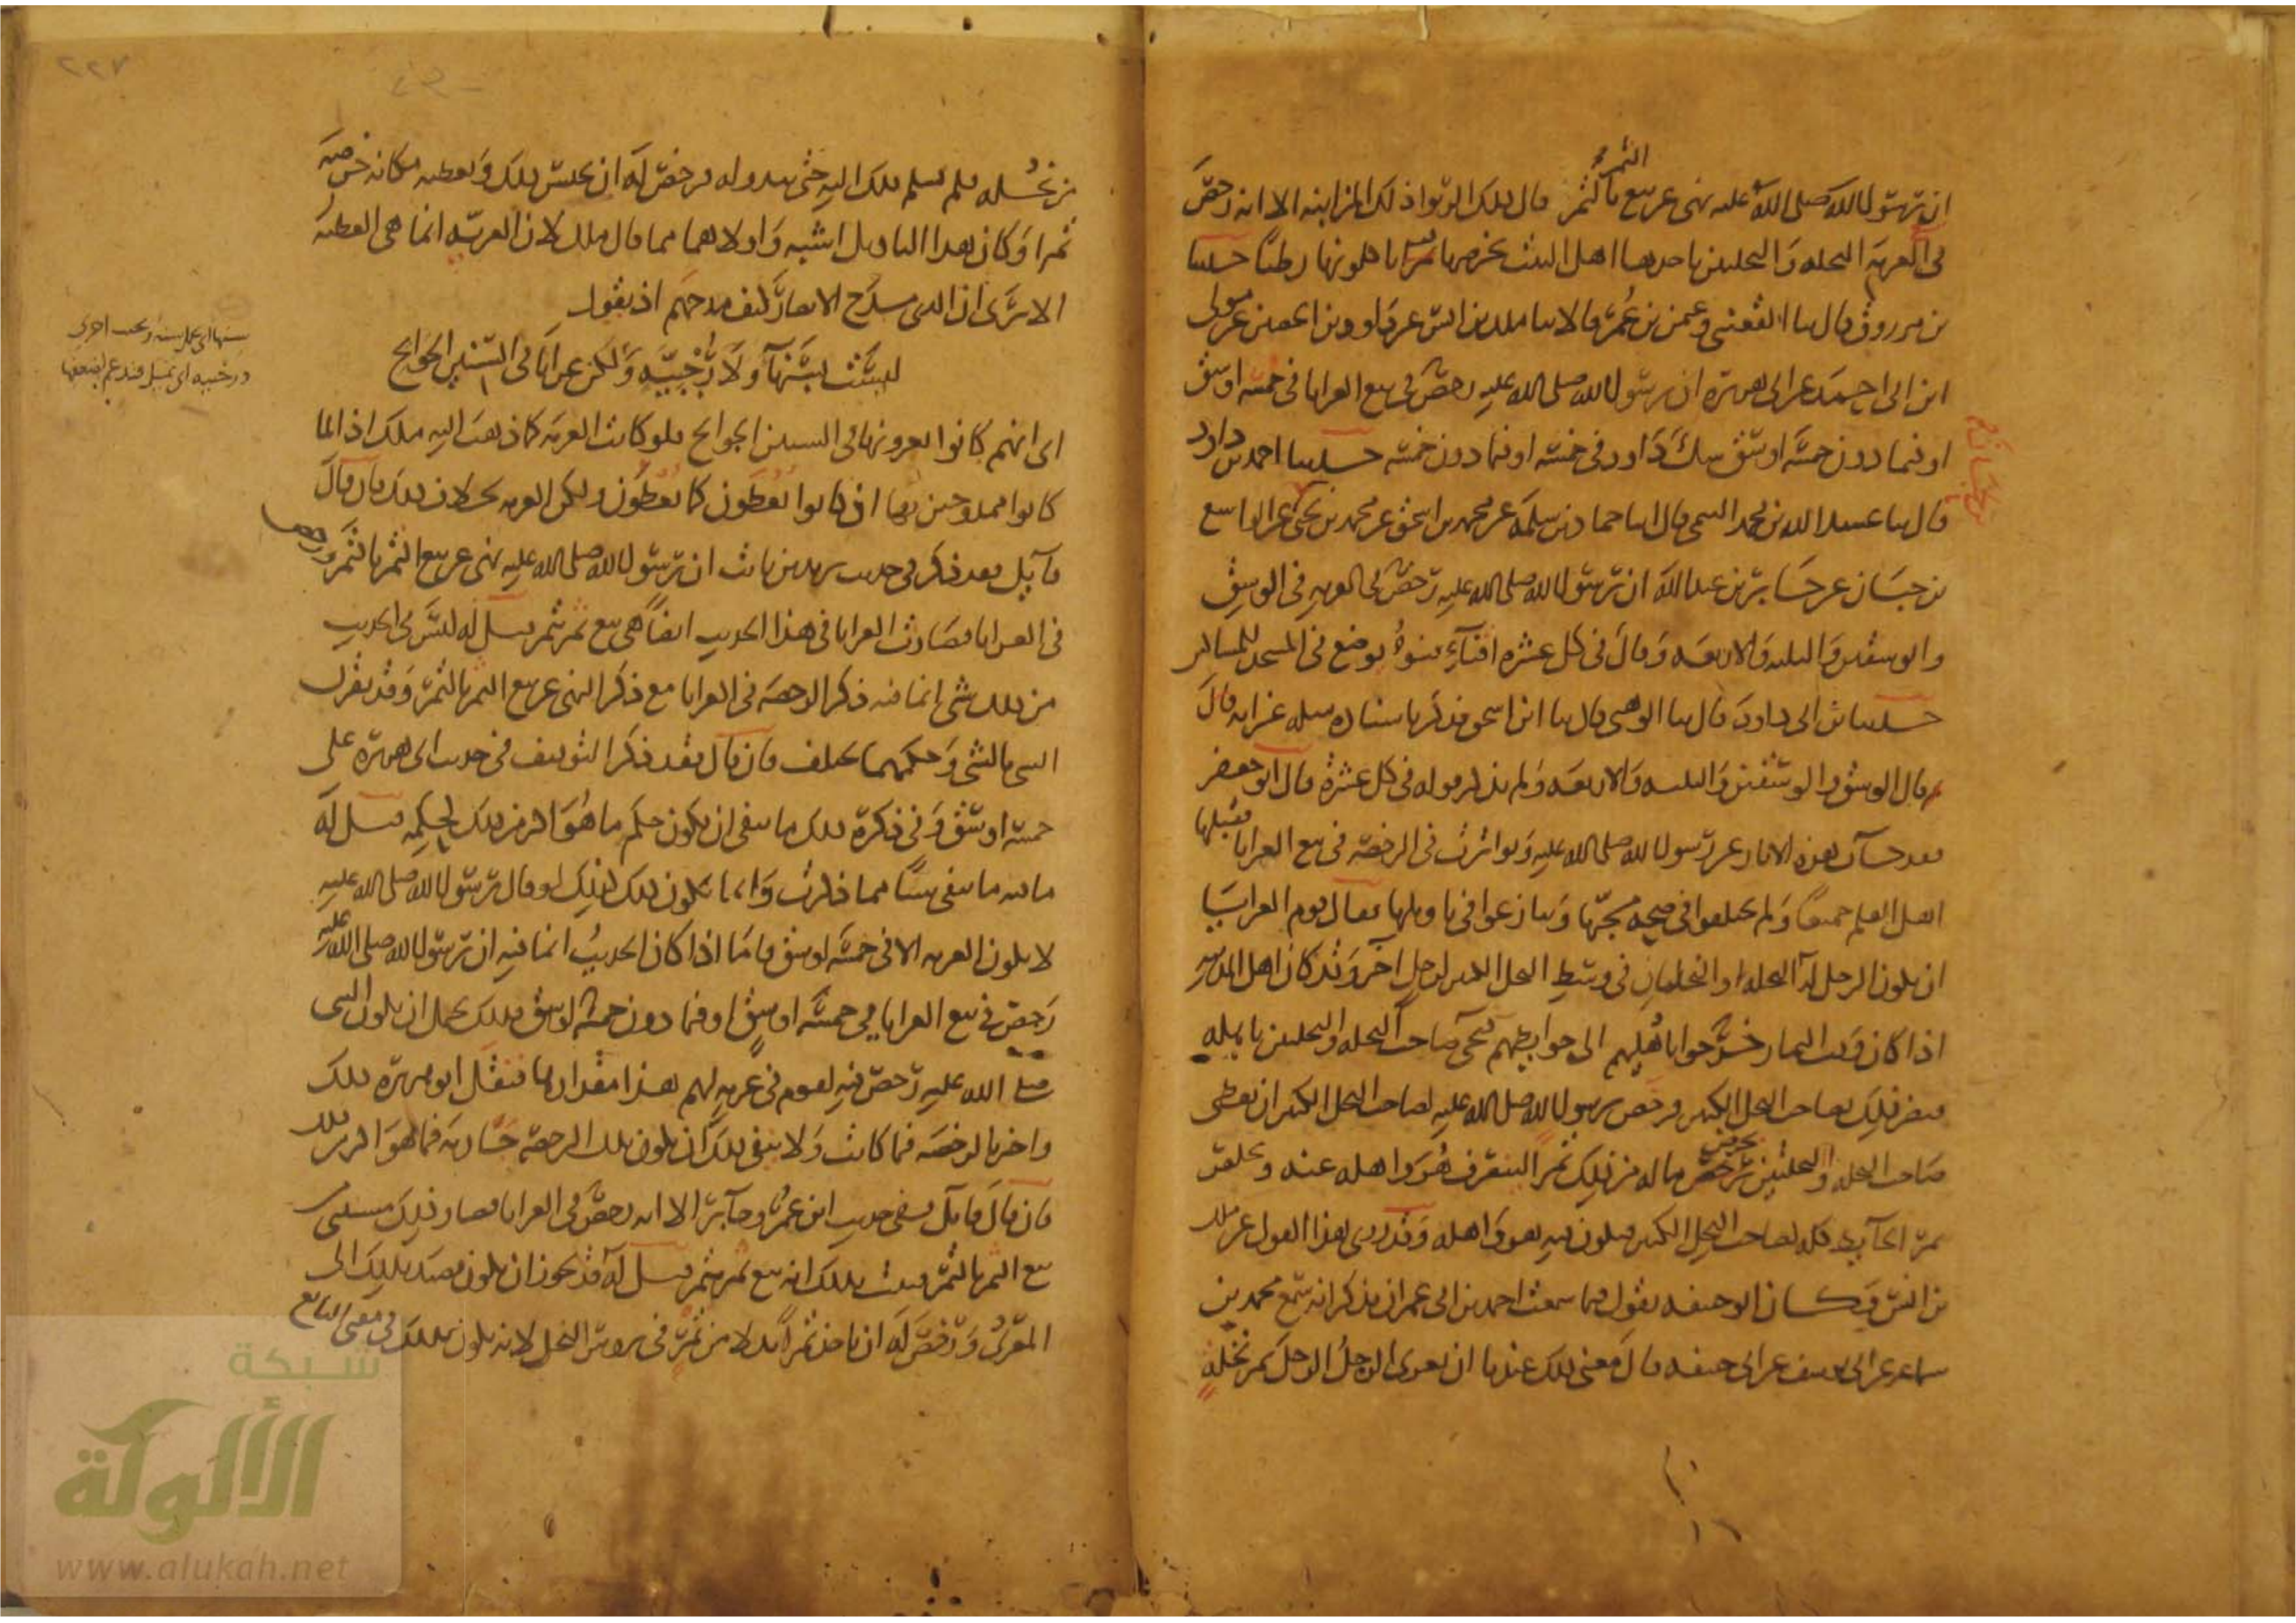 الثمر
ان رسول الله صلى الله عليه نهى عن بيع بالثمر قال ذلك الربوا ذلك المزابنة الا انه رخص
في العرية النخلة والنخلتين ياخذها اهل البيت بخرصها تمرا ياكلونها رطبا حدثنا
بن مرزوق قال ثنا القعنبي وعثمن بن عمر قالا ثنا ملك بن انس عن داوود بن الحصين عن مولى
ابن ابي احمد عن ابي هريرة ان رسول الله صلى الله عليه رخص في بيع العرايا في خمسة اوسق
او فيما دون خمسة اوسق شك داود في خمسة او فيما دون خمسة حدثنا احمد بن داود
قال ثنا عبيد الله بن محمد التيمي قال انا حماد بن سلمة عن محمد بن اسحق عن محمد بن يحيى عن الواسع
بن حبان عن جابر بن عبد الله ان رسول الله صلى الله عليه رخص في العرية في الوسق
والوسقين والثلثة والاربعة وقال في كل عشرة اقناء قنو يوضع في المسجد للمساكين
حدثنا بن ابي داود قال ثنا الوهبي قال ثنا ابن اسحق فذكر باسناده مثله غير انه قال
ثم قال الوسق والوسقين والثلثة والاربعة ولم يذكر قوله في كل عشرة قال ابو جعفر
فقد جاءت هذه الاثار عن رسول الله صلى الله عليه وتواترت في الرخصة في بيع العرايا فقبلها
اهل العلم جميعا ولم يختلفوا في صحة مجيها وتنازعوا في تاويلها فقال قوم العرايا
ان يكون الرجل له النخلة او النخلتان في وسط النخل الكثير لرجل اخر وقد كان اهل المدينة
اذا كان وقت الثمار خرجوا باهليهم الى حوايطهم فيجي صاحب النخلة والنخلتين باهله
فيضر ذلك بصاحب النخل الكثير فرخص رسول الله صلى الله عليه لصاحب النخل الكثير ان يعطي
صاحب النخلة والنخلتين خرص ماله من ذلك تمرا لينصرف هو واهله عنه ويخلص
تمر الحايط كله لصاحب النخل الكثير فيكون فيه هو واهله وقد روى هذا القول عن ملك
بن انس وكان ابو حنيفة يقول فيما سمعت احمد بن ابي عمران يذكر انه سمع محمد بن
سماعة عن ابي يوسف عن ابي حنيفة قال معنى ذلك عندنا ان يعري الرجل الرجل ثمر نخلة
٢٢٧
من نخله فلم يسلم ذلك اليه حتى يبدو له فرخص له ان يحبس ذلك ويعطيه مكانه خرصه
تمرا وكان هذا التاويل اشبه واولاهما مما قال ملك لان العرية انما هي العطية
الا ترى ان الذي مدح الانصار كيف مدحهم اذ يقول
ليست بسنهآ ولا رجبية ولكن عرايا في السنين الجوايح
اي انهم كانوا يعرونها في السنين الجوايح فلو كانت العرية كما ذهب اليه ملك اذا لما
كانوا ممدوحين بها اذ كانوا يعطون كما يعطون ولكن العرية بخلاف ذلك فان قال
قايل فقد ذكر في حديث زيد بن ثابت ان رسول الله صلى الله عليه نهى عن بيع الثمر بالتمر ورخص
في العرايا فصارت العرايا في هذا الحديث ايضا هي بيع ثمر بتمر قيل له ليس في الحديث
من ذلك شي انما فيه ذكر الرخصة في العرايا مع ذكر النهي عن بيع الثمر بالتمر وقد يقرن
الشي بالشي وحكمهما مختلف فان قال فقد ذكر التوقيف في حديث ابي هريرة على
خمسة اوسق وفي ذكره ذلك ما ينفي ان يكون حكم ما هو اكثر من ذلك كحكمه قيل له
ما فيه ما ينفي شيئا مما ذكرت وانما يكون ذلك كذلك لو قال رسول الله صلى الله عليه
لا يكون العرية الا في خمسة اوسق فاما اذا كان الحديث انما فيه ان رسول الله صلى الله عليه
رخص في بيع العرايا في خمسة اوسق او فيما دون خمسة اوسق فذلك يحتمل ان يكون النبي
صلى الله عليه رخص فيه لقوم في عرية لهم هذا مقدارها فنقل ابو هريرة ذلك
واخبر بالرخصة فيما كانت ولا ينفي ذلك ان يكون تلك الرخصة جارية فيما هو اكثر من ذلك
فان قال قايل ففي حديث ابن عمر وجابر الا انه رخص في العرايا فصار ذلك مستثنى من
بيع الثمر بالتمر فثبت بذلك انه بيع ثمر بتمر قيل له قد يجوز ان يكون قصد بذلك الى
المعرى ورخص له ان ياخذ تمرا بدلا من ثمر في رءوس النخل لانه يكون بذلك في معنى البايع
شبكة
الألوكة
www.alukah.net